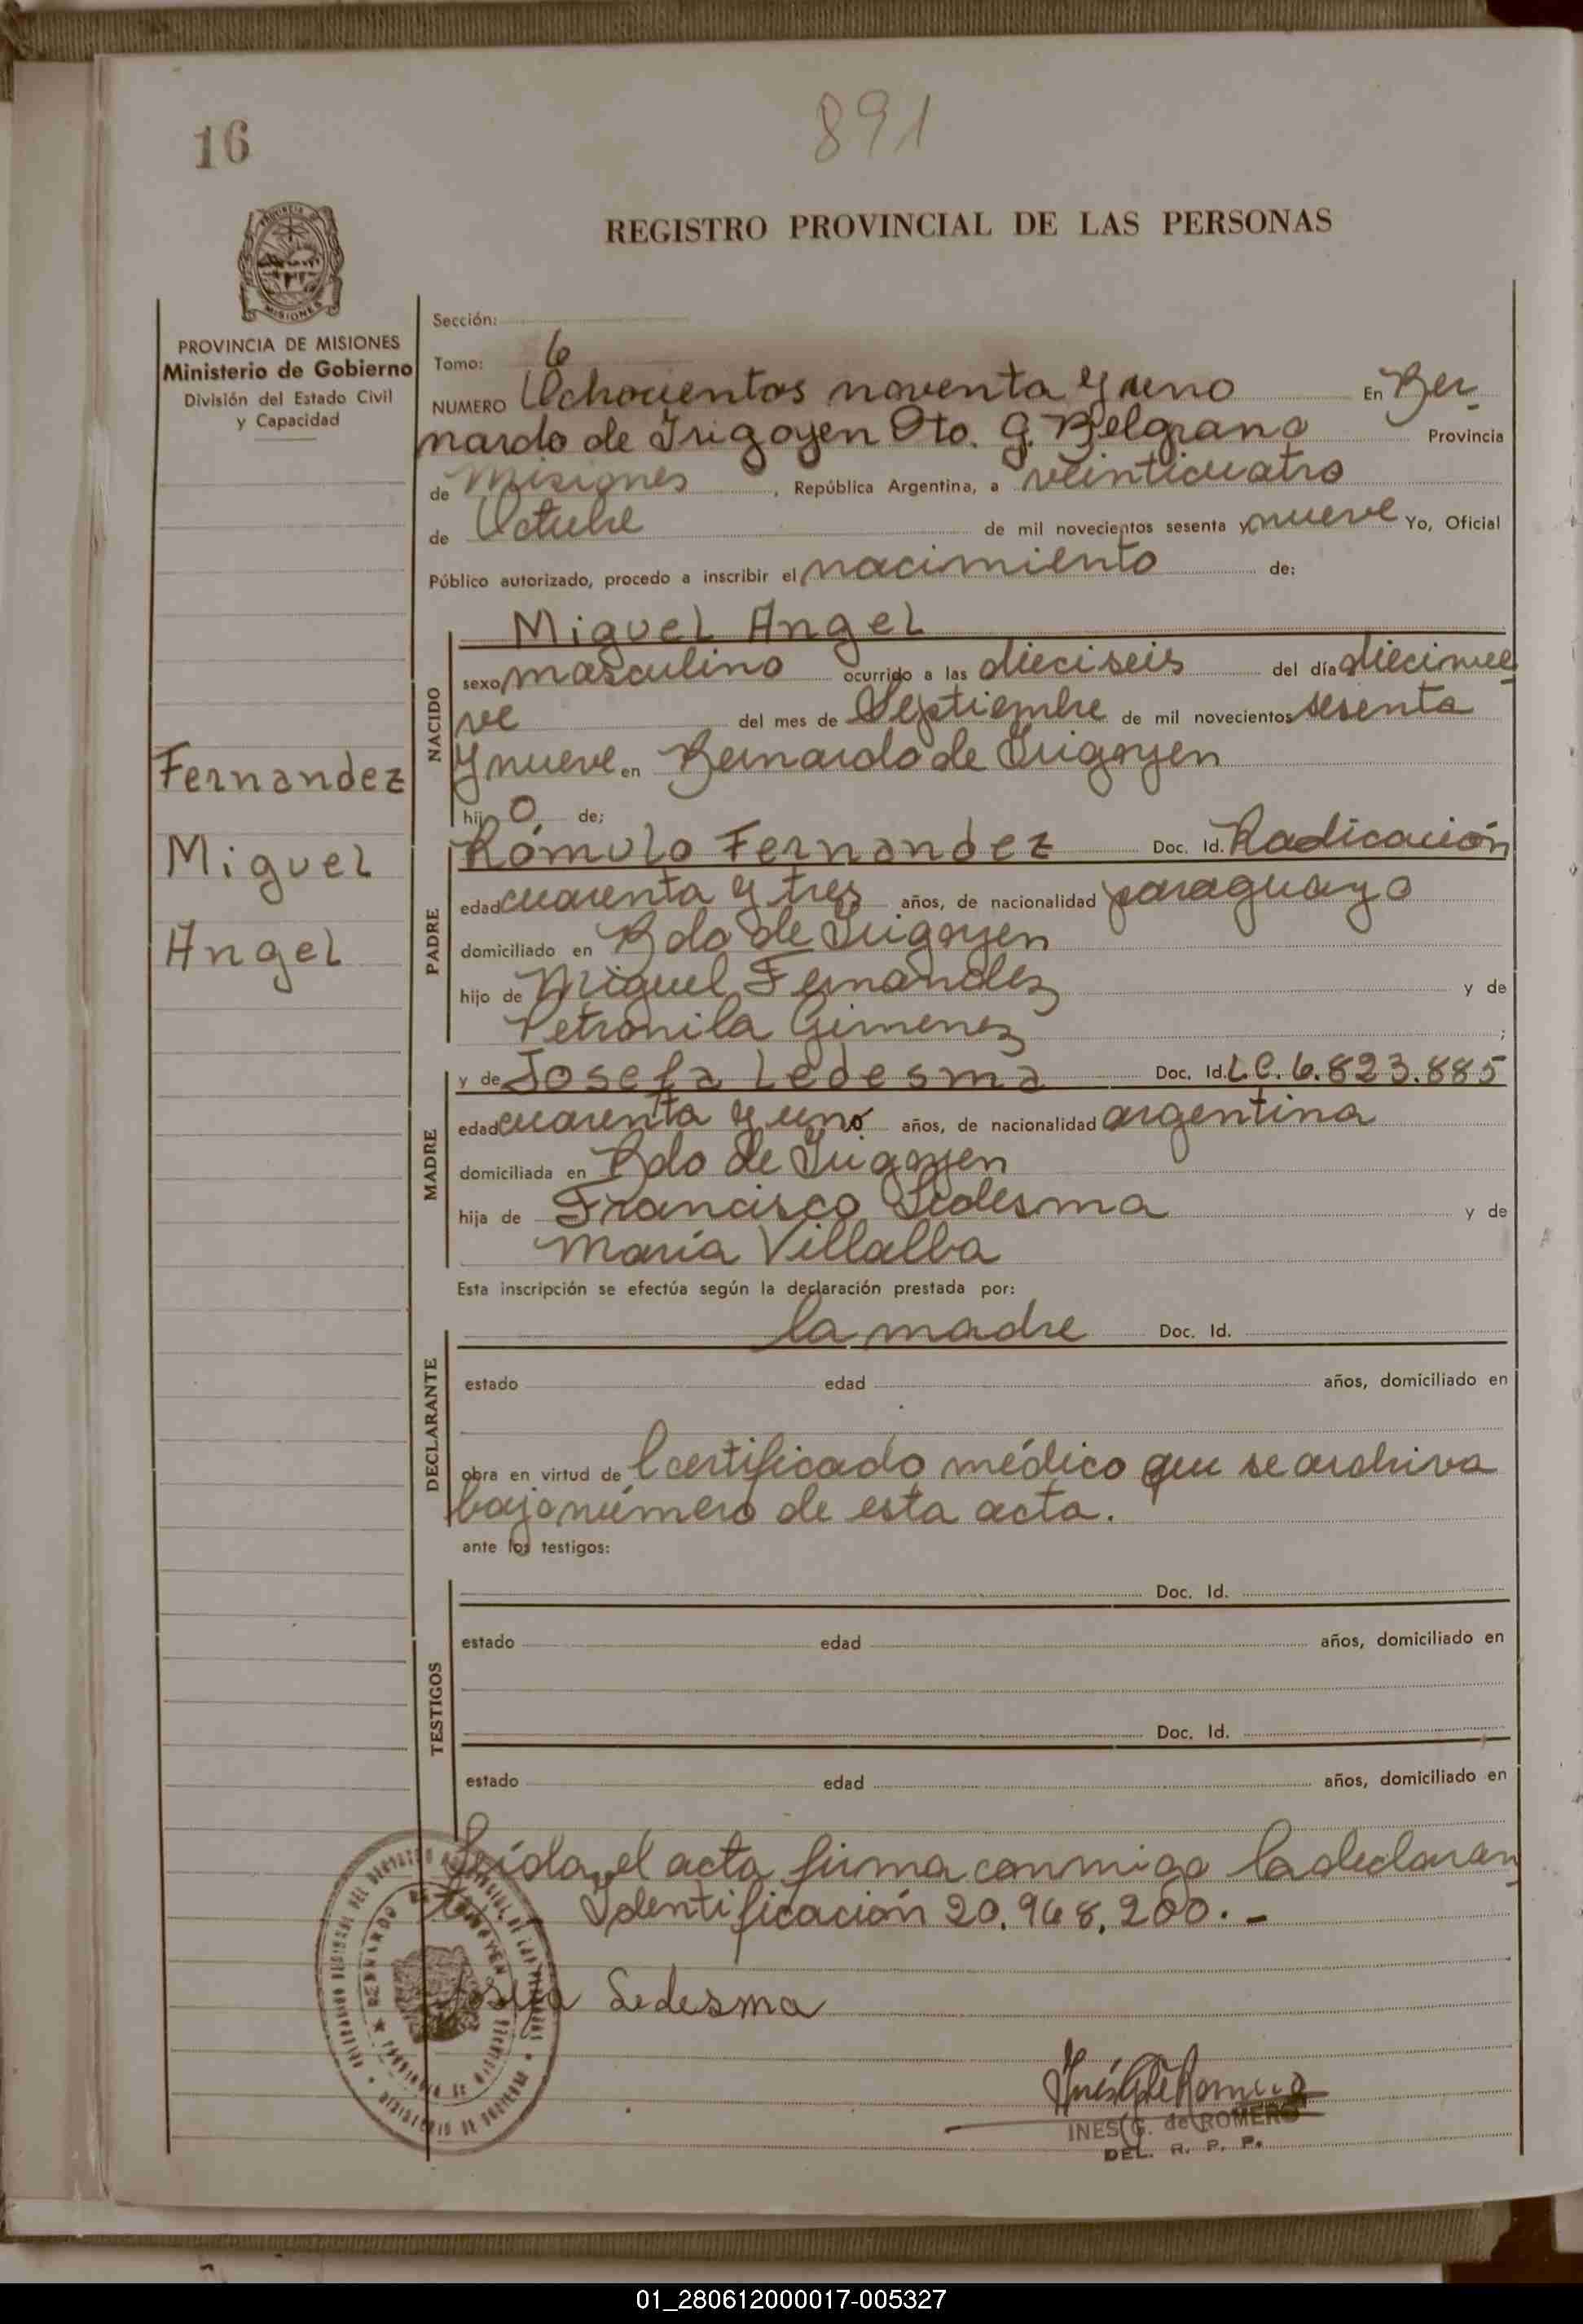 16
891
REGISTRO PROVINCIAL DE LAS PERSONAS
MISIONES
PROVINCIA DE MISIONES
Ministerio de Gobierno
División del Estado Civil
y Capacidad
Fernandez
Miguel
Angel
Sección:
Tomo: 6
NUMERO Ochocientos noventa y uno En Ber
nardo de Irigoyen Dto. G. Belgrano Provincia
de Misiones, República Argentina, a veinticuatro
de Octubre de mil novecientos sesenta y nueve Yo, Oficial
Público autorizado, procedo a inscribir el nacimiento de:
NACIDO
Miguel Angel
sexo masculino ocurrido a las dieciseis del día diecinue
ve del mes de Septiembre de mil novecientos sesenta
y nueve en Bernardo de Irigoyen
hijo de;
PADRE
Rómulo Fernandez Doc. Id. Radicación
edad cuarenta y tres años, de nacionalidad paraguayo
domiciliado en Bdo de Irigoyen
hijo de Miguel Fernandez y de
Petronila Gimenez ;
MADRE
y de Josefa Ledesma Doc. Id. L.C. 6.823.885
edad cuarenta y uno años, de nacionalidad argentina
domiciliada en Bdo de Irigoyen
hija de Francisco Ledesma y de
María Villalba
Esta inscripción se efectúa según la declaración prestada por:
DECLARANTE
la madre Doc. Id.
estado edad años, domiciliado en
obra en virtud de certificado médico que se archiva
bajo número de esta acta.
ante los testigos:
TESTIGOS
Doc. Id.
estado edad años, domiciliado en
Doc. Id.
estado edad años, domiciliado en
Leída el acta firma conmigo la declaran
te. Identificación 20.968.200.-
Josefa Ledesma
Inés G de Romero
INES G. de ROMERO
DEL. R. P. P.
01_280612000017-005327